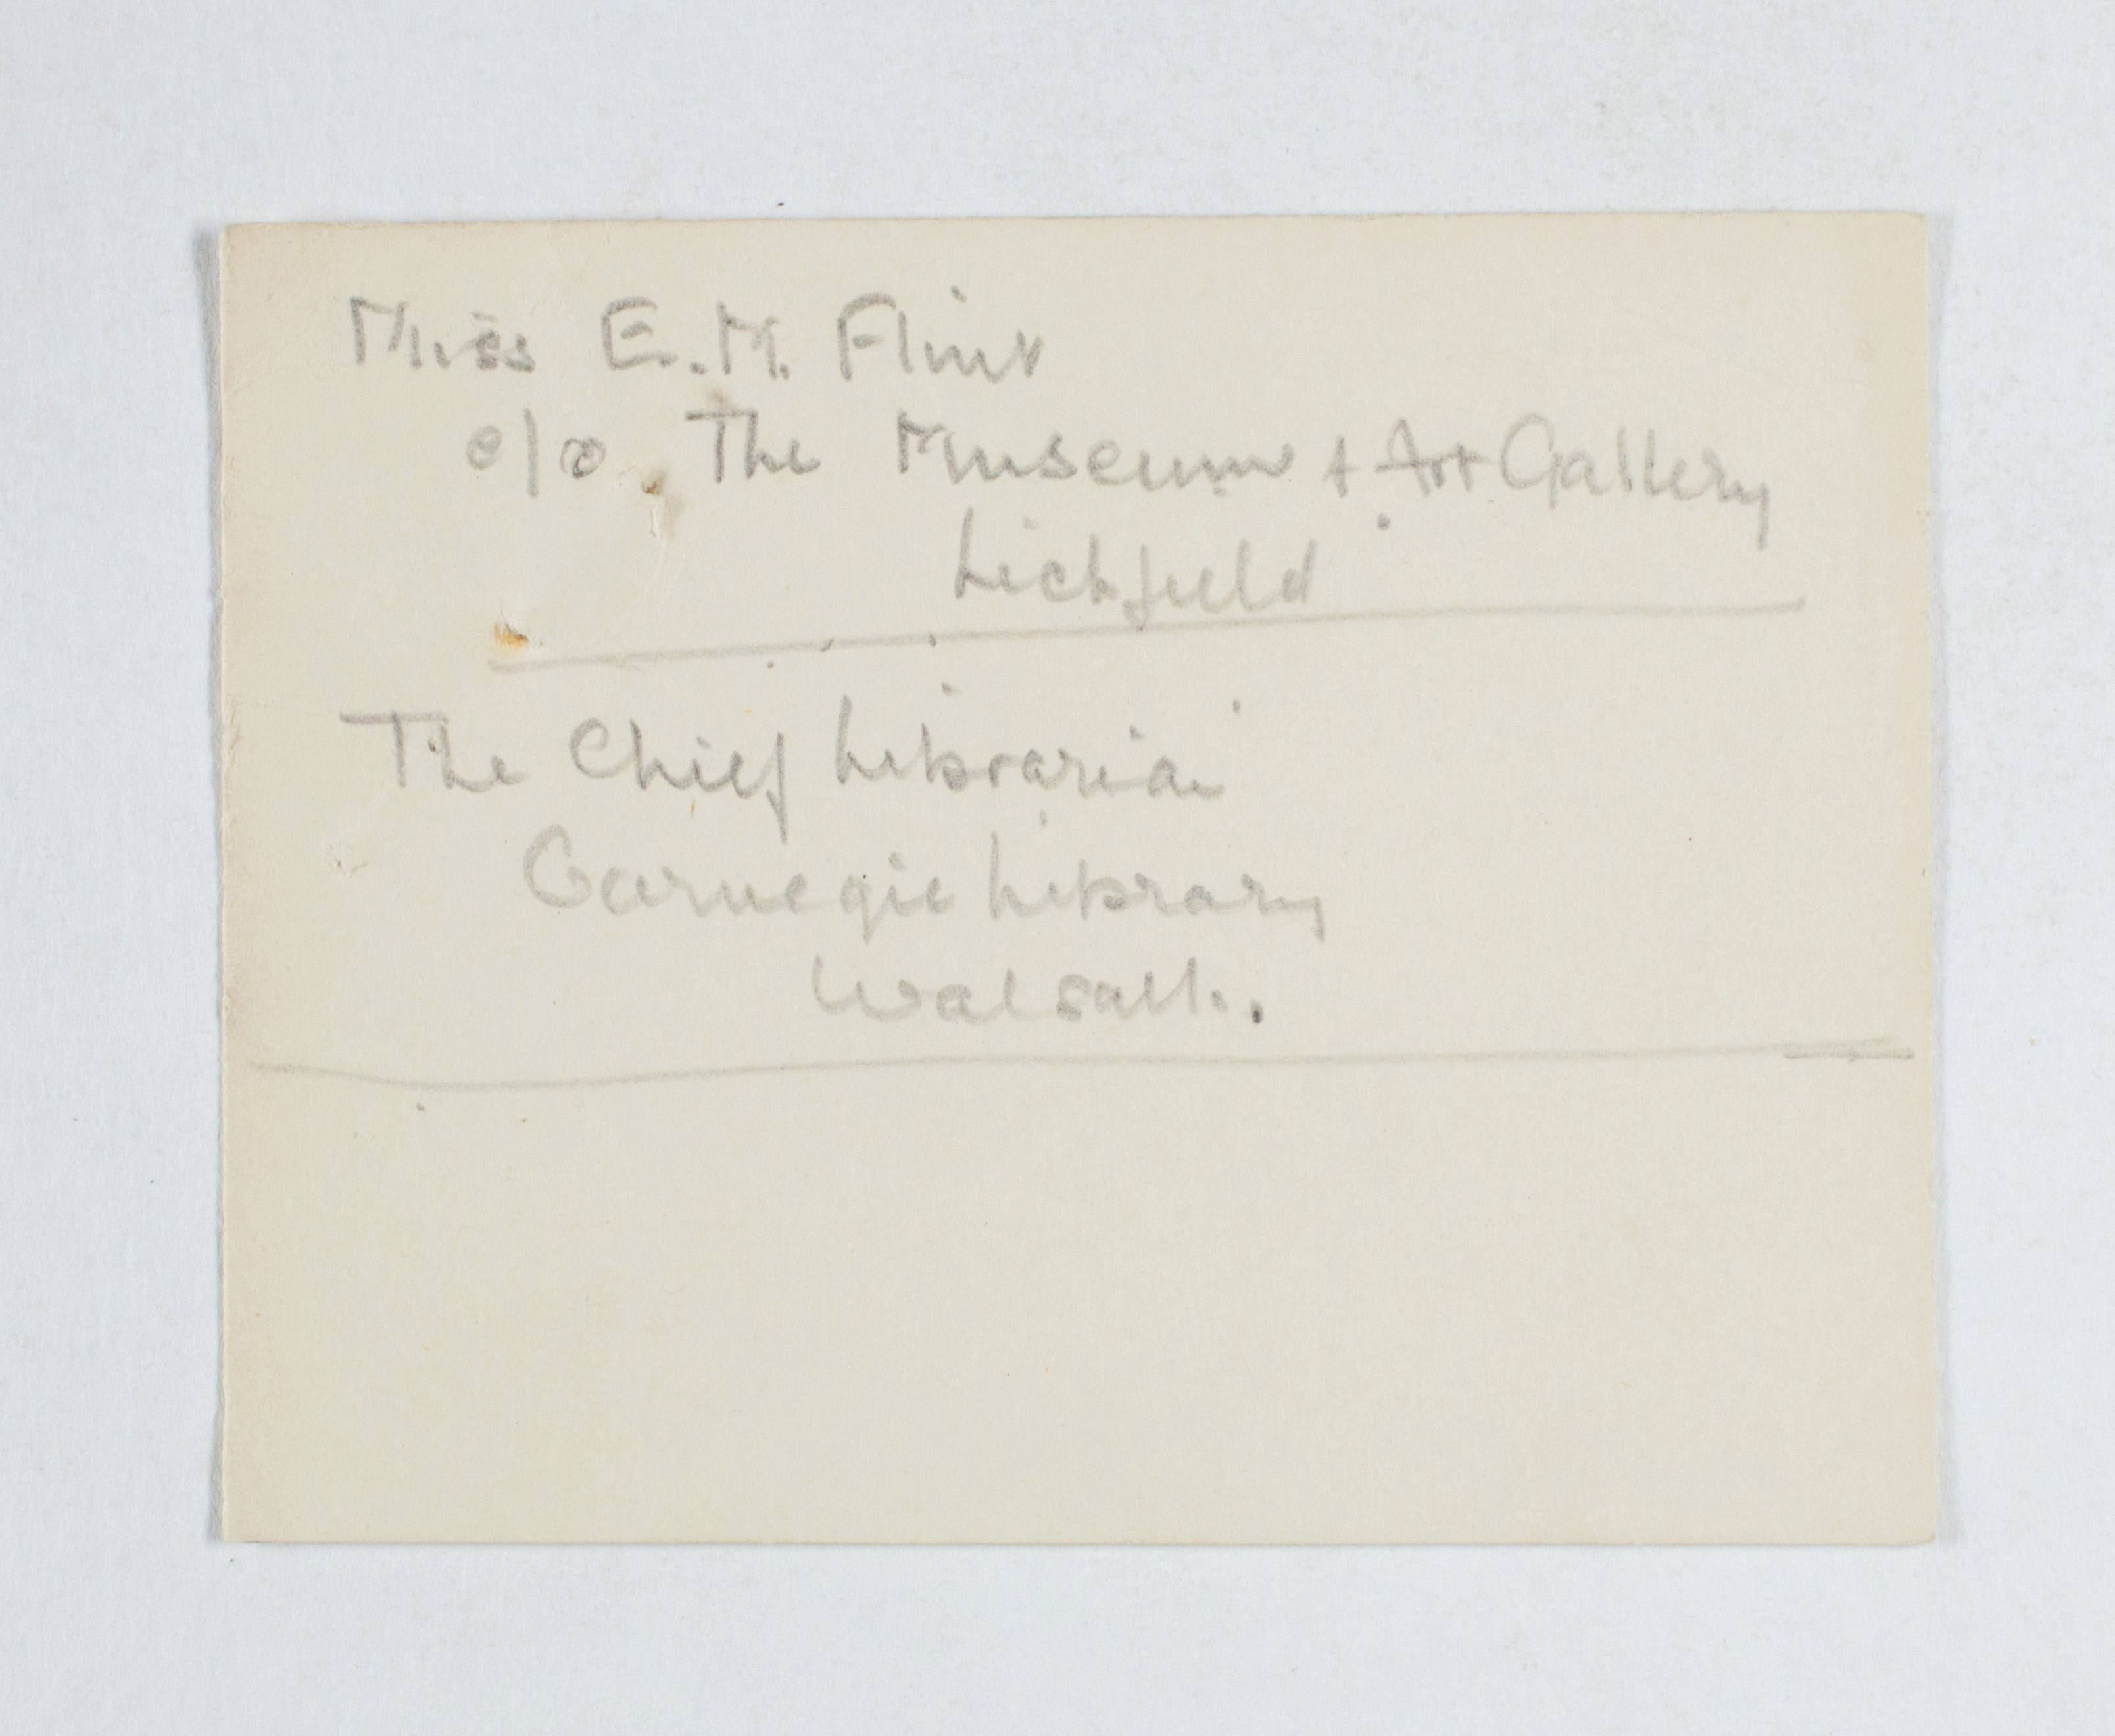 Miss E. M. Flint
c/o The Museum + Art Gallery
Lichfield
The Chief Librarian
Carnegie Library
Walsall.